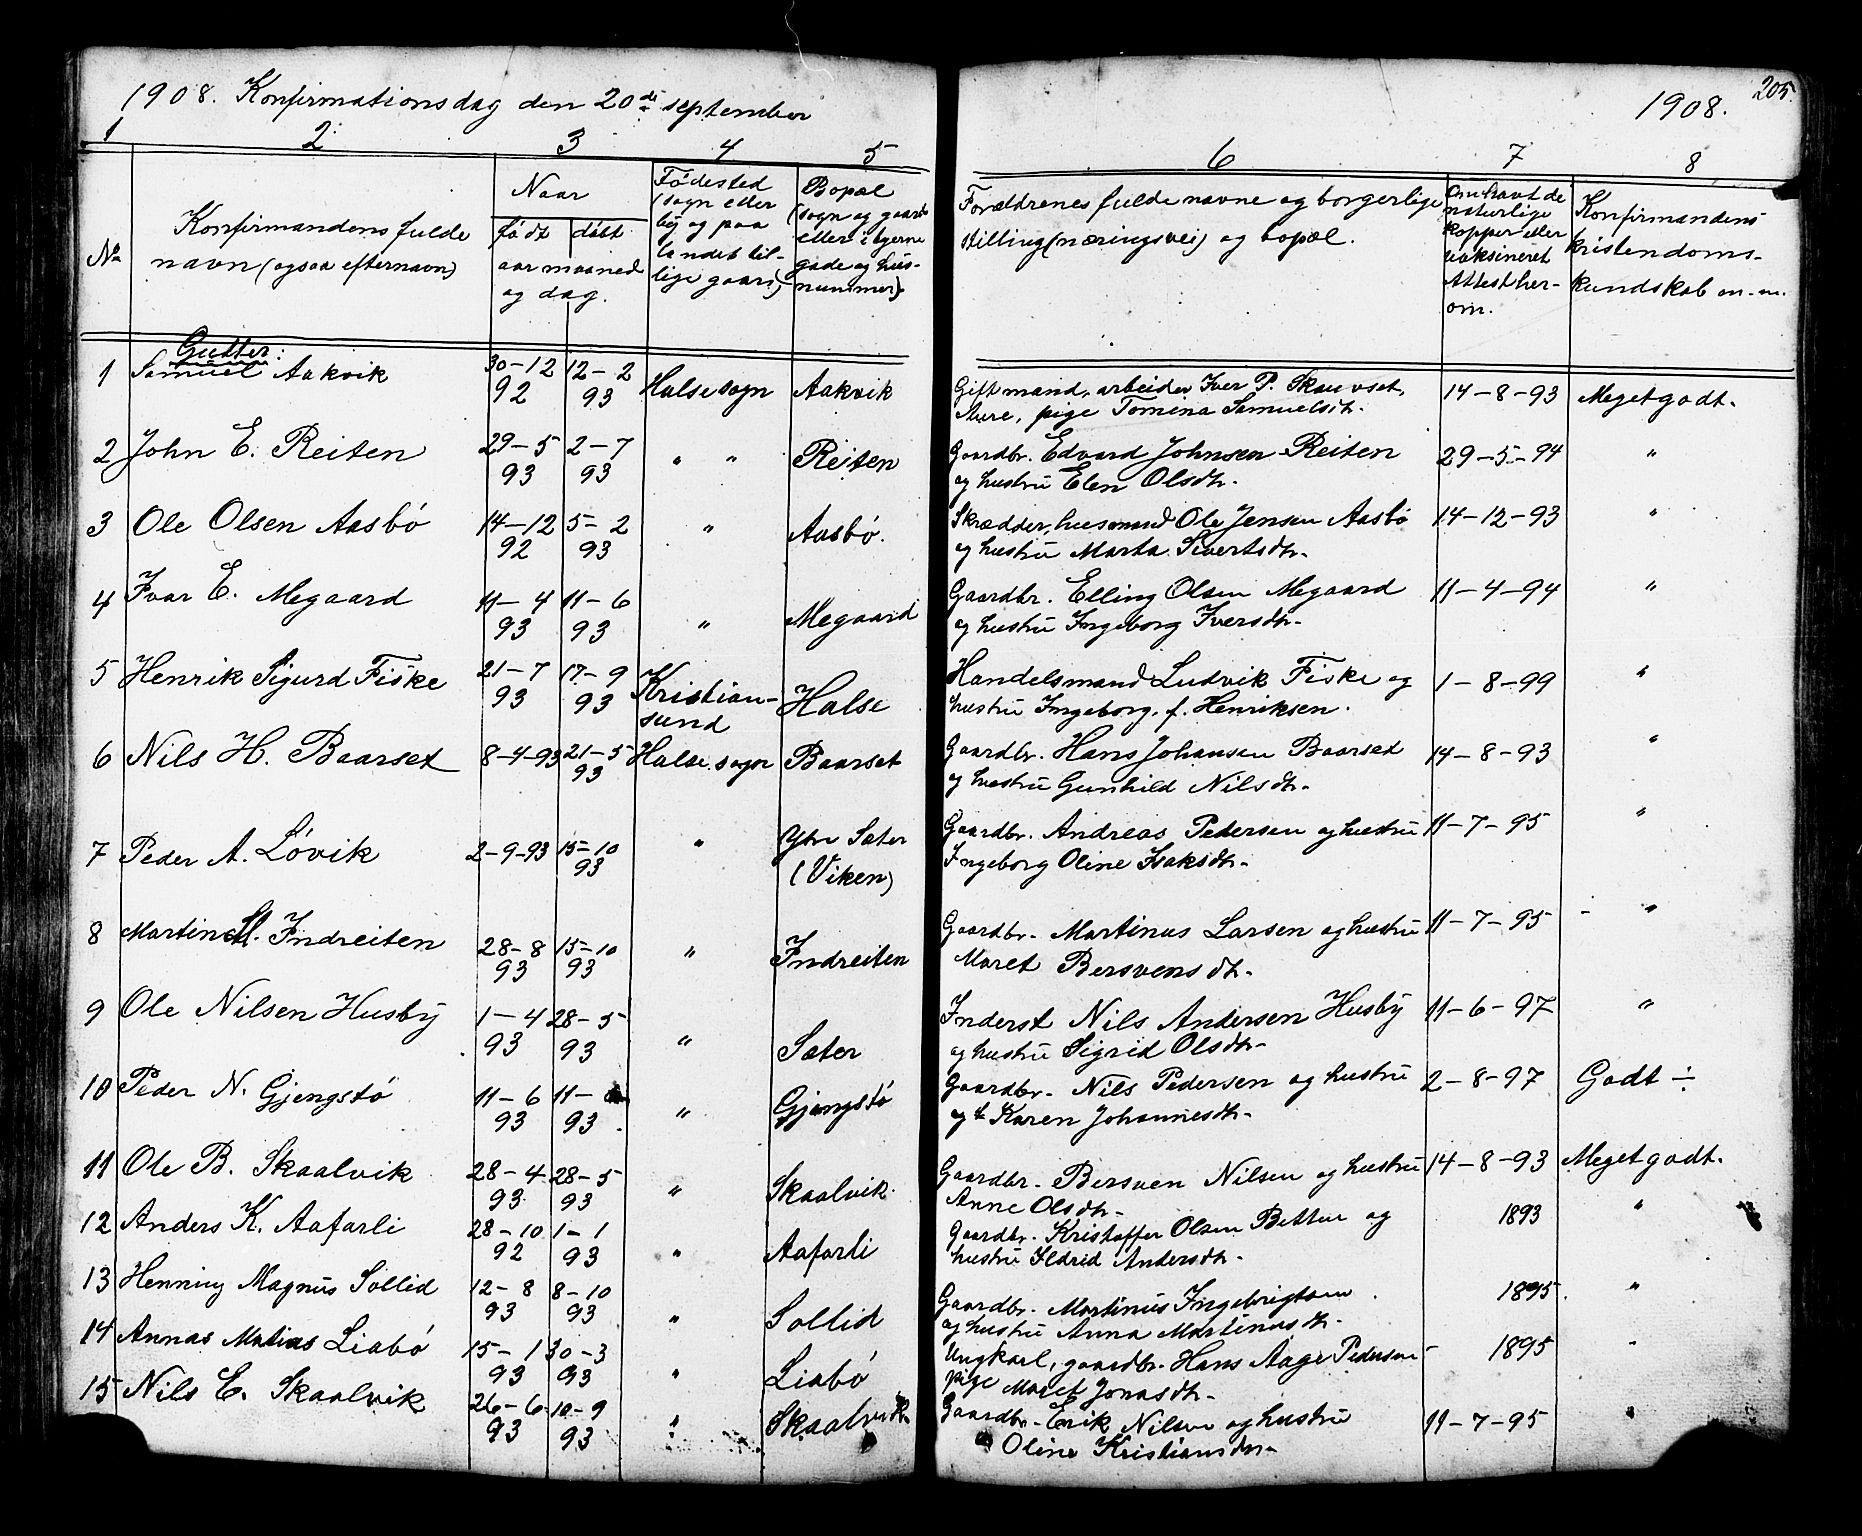 1908. Konfirmationsdag den 20de september
1908. 205.
1 2 3 4 5 6 7 8
No
Konfirmandens fulde
navn (ogsaa efternavn)
Naar
født døbt
aar maaned
og dag.
Fødested
(sogn eller
by og paa
landet til-
lige gaard)
Bopæl
(sogn og gaard
eller i byerne
gade og hus-
nummer).
Forældrenes fulde navne og borgerlige
stilling (næringsvei) og bopæl.
Om havt de
naturlige
kopper eller
vaksineret
Attest her-
om.
Konfirmandens
kristendoms-
kundskab m. m.
Gutter:
1 Samuel Aakvik 30-12 92 12-2 93 Halse sogn Aakvik Gift mand, arbeider Iver P. Skauvset, 14-8-93 Meget godt.
Ture, pige Tomena Samuelsdtr.
2 John E. Reiten 29-5 93 2-7 93 " " Reiten Gaardbr. Edvard Johnsen Reiten 29-5-94 "
og hustru Elen Olsdtr.
3 Ole Olsen Aasbø 14-12 92 5-2 93 " Aasbø. Skrædder, husmand Ole Jensen Aasbø 14-12-93 "
og hustru Marta Sivertsdtr.
4 Ivar E. Megaard 11-4 93 11-6 93 " Megaard Gaardbr. Elling Olsen Megaard 11-4-94 "
og hustru Ingeborg Iversdtr.
5 Henrik Sigurd Fiske 21-7 93 17-9 93 Kristian-sund Halse Handelsmand Ludvik Fiske og 1-8-99 "
hustru Ingeborg. f. Henriksen.
6 Nils H. Baarset 8-4-93 21-5 93 Halse sogn Baarset Gaardbr. Hans Johansen Baarset 14-8-93 "
og hustru Gunhild Nilsdtr.
7 Peder A. Løvik 2-9-93 15-10 93 " Ytre Sæter (Viken) Gaardbr. Andreas Pedersen og hustru 11-7-95 "
Ingeborg Oline Isaksdtr.
8 Martin M. Indreiten 28-8 93 15-10 93 " Indreiten Gaardbr. Martinus Larsen og hustru 11-7-95 "
Maret Bersvensdtr.
9 Ole Nilsen Husby 1-4 93 28-5 93 " Sæter Inderst Nils Andersen Husby 11-6-97 "
og hustru Sigrid Olsdtr.
10 Peder N. Gjengstø 11-6 93 11- 93 " Gjengstø Gaardbr. Nils Pedersen og hustru 2-8-97 Godt ÷
Karen Johannesdtr.
11 Ole B. Skaalvik 28-4 93 28-5 93 " Skaalvik Gaardbr. Bersven Nilsen og hustru 14-8-93 Meget godt.
Anne Olsdtr.
12 Anders K. Aafarli 28-10 92 1-1 93 " Aafarli Gaardbr. Kristoffer Olsen Betten og 1893 "
hustru Ildrid Andersdtr.
13 Henning Magnus Sollid 12-8 93 8-10 93 " Sollid Gaardbr. Martinus Ingebrigtsen 1895. "
og hustru Anna Martinusdtr.
14 Annas Matias Liabø 15-1 93 30-3 93 " Liabø Ungkarl, gaardbr. Hans Aage Pedersen 1895 "
pige Maret Jonasdtr.
15 Nils E. Skaalvik 26-6 93 10-9 93 " Skaalvik Gaardbr. Erik Nilsen og hustru 11-7-95 "
Oline Kristiansdtr.